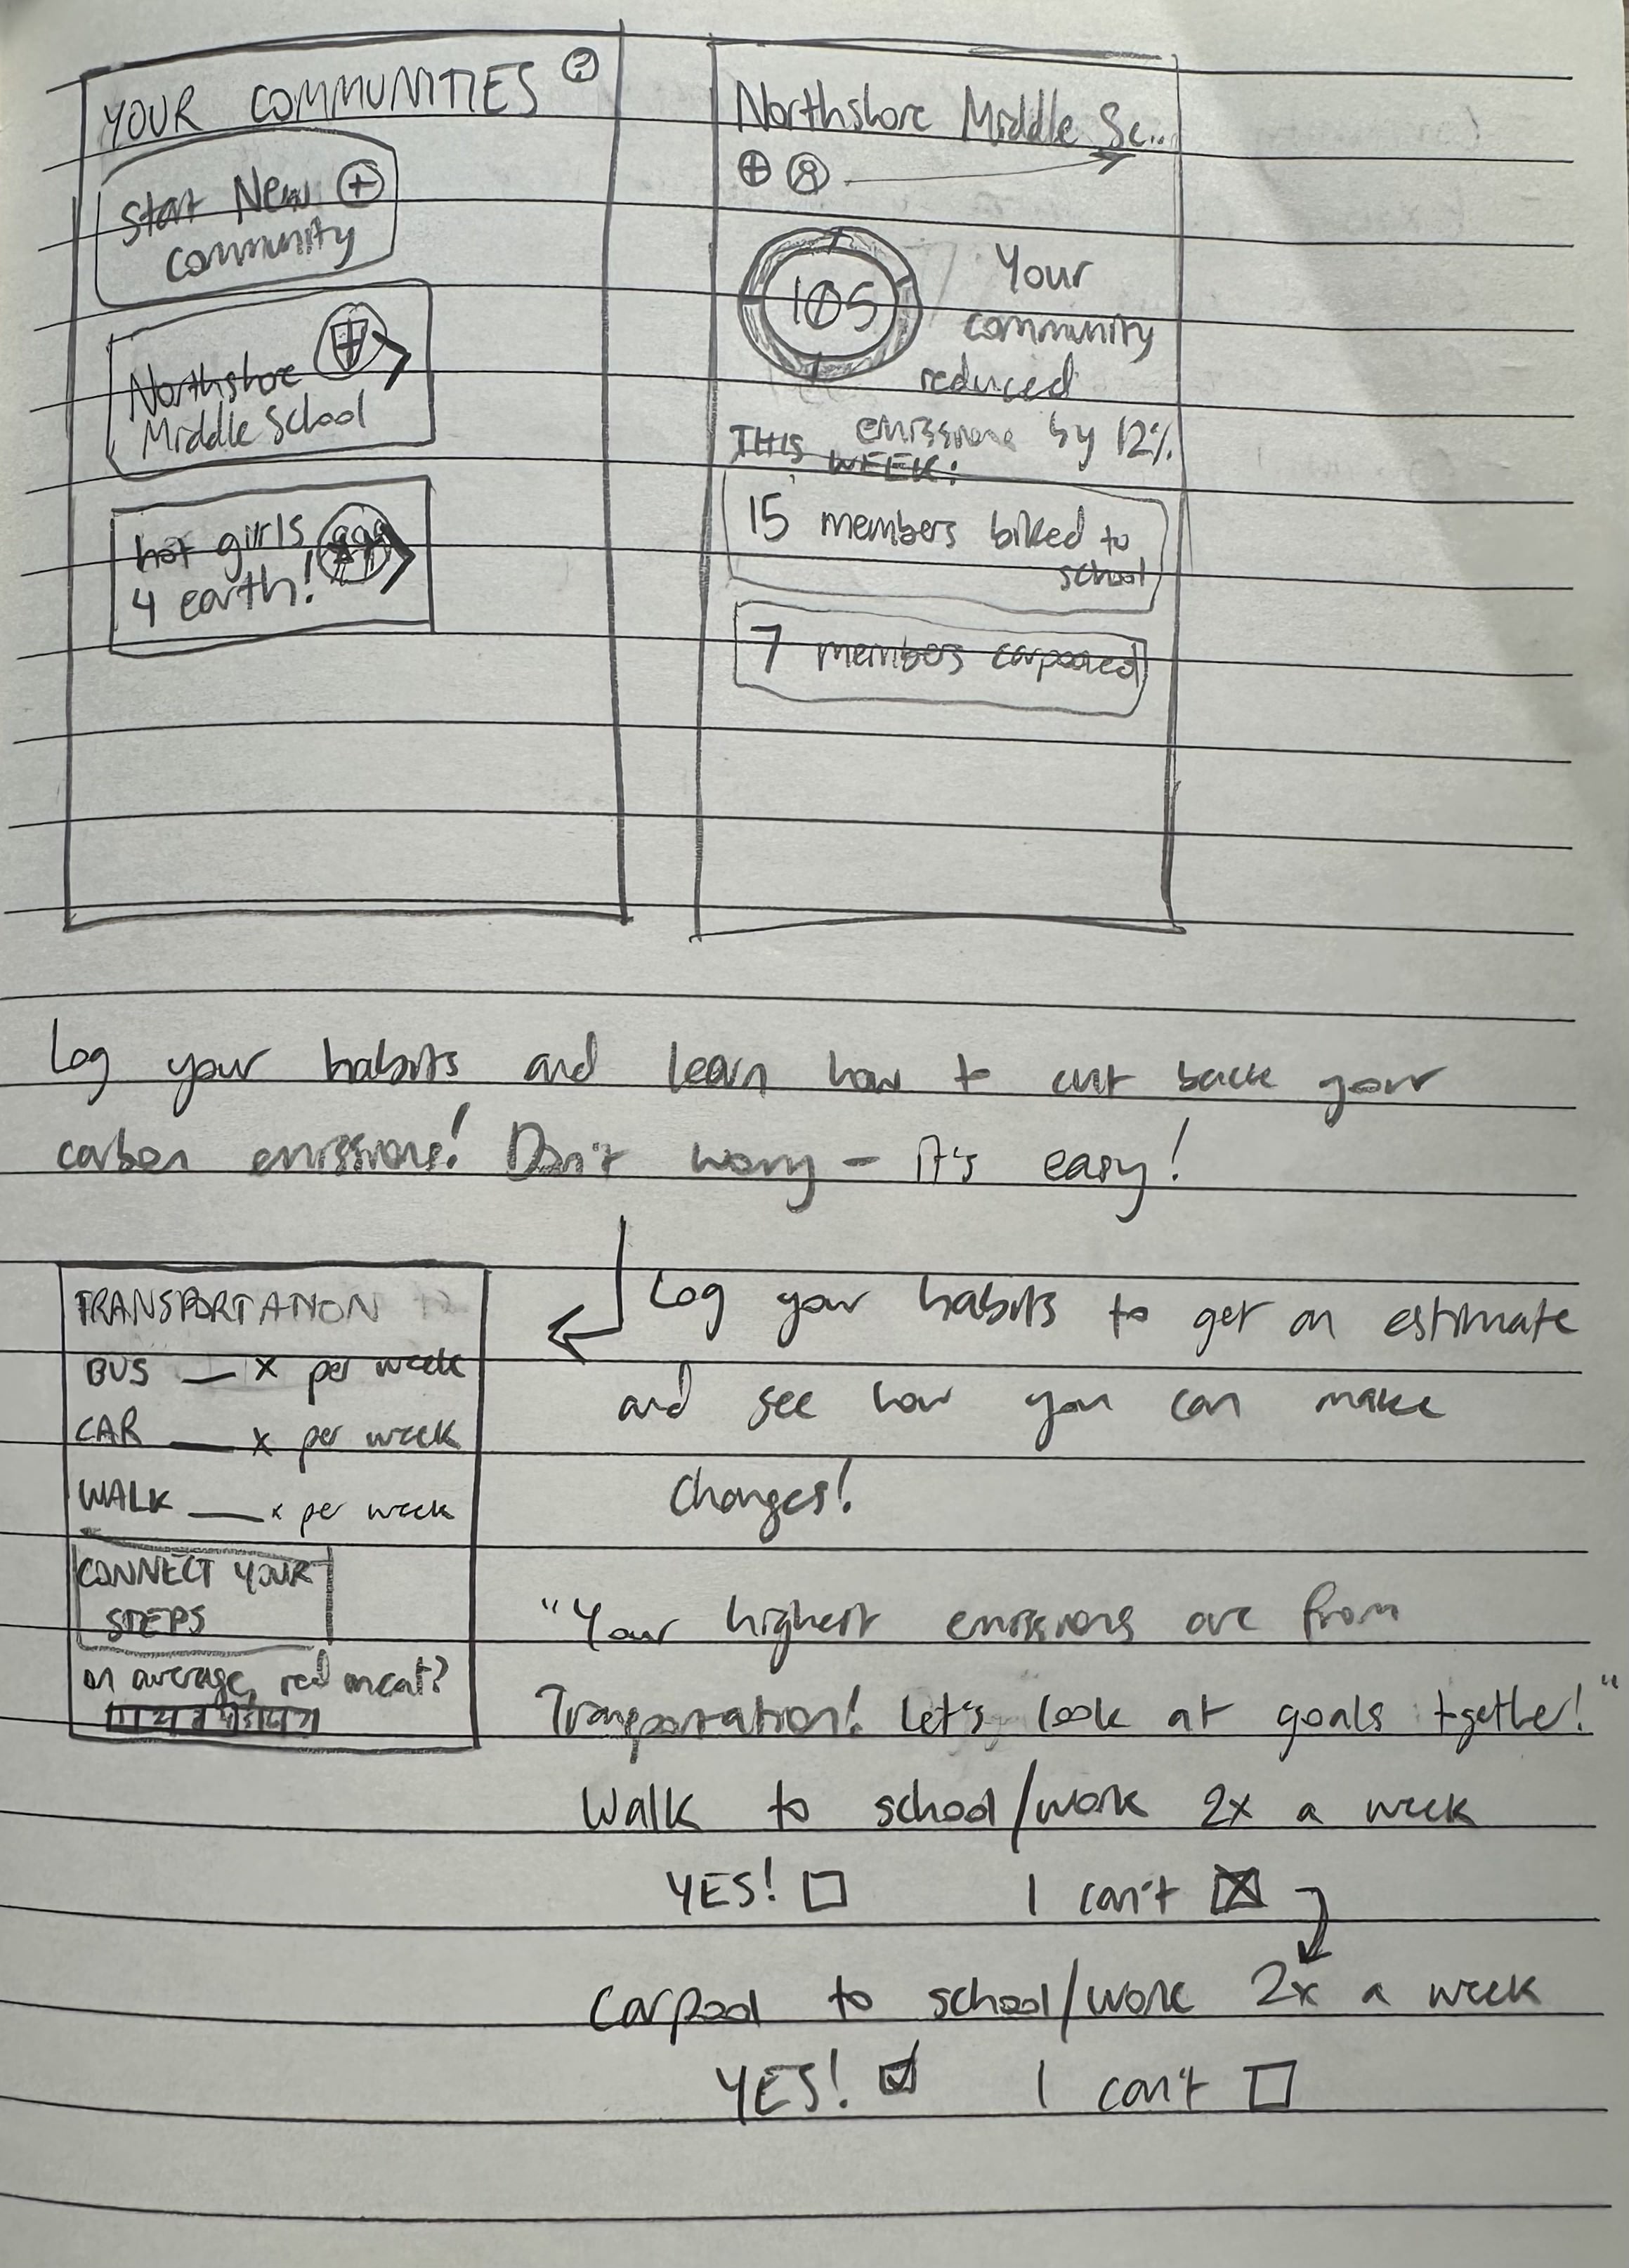 YOUR COMMUNITIES ?
Start New +
community
Northshore
Middle School
hot girls
4 earth!
Northshore Middle Sc...
105
Your
community
reduced
emissions by 12%
THIS WEEK:
15 members biked to
school
7 members carpooled
Log your habits and learn how to cut back your
carbon emissions! Don't worry - it's easy!
TRANSPORTATION
BUS __ x per week
CAR __ x per week
WALK __ x per week
CONNECT YOUR
STEPS
on average, red meat?
Log your habits to get an estimate
and see how you can make
changes!
"Your highest emissions are from
Transportation! Let's look at goals together!"
Walk to school/work 2x a week
YES! ☐ I can't ☒
Carpool to school/work 2x a week
YES! ☑ I can't ☐